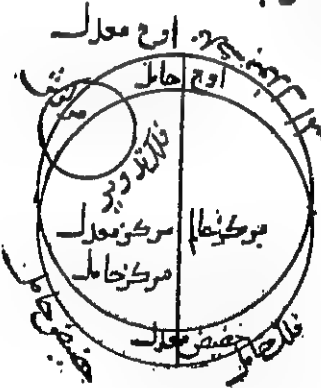 اوج معدل
اوج حامل
فلک تدویر
مرکز معدل
مرکز حامل
مرکز عالم
حضیض معدل
حضیض حامل
فلک حامل